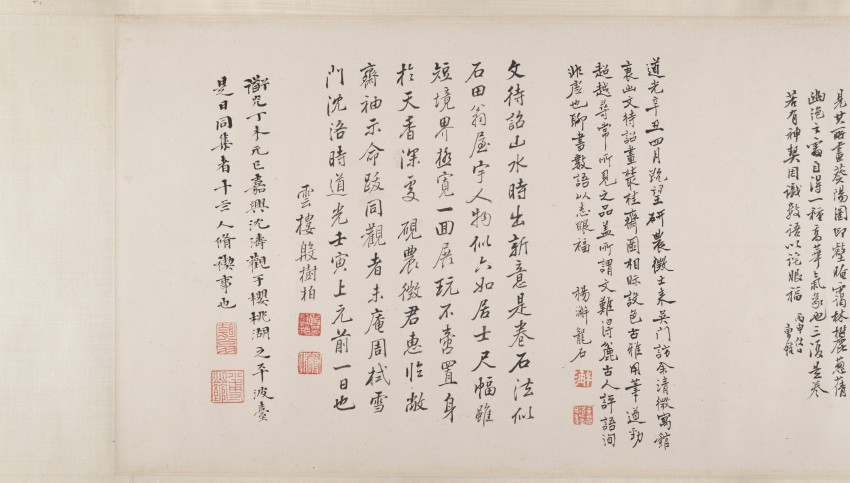 見其所畫葵陽圖印壑晦靄林麓蔥蒨
幽絕之處自得一種高華氣象也三復是卷
若有神契因識數語以誌眼福
道光辛丑四月既望研農徵士來吳門訪余清微寓館
裏幽文待詔畫叢桂齋圖相眎設色古雅用筆遒勁
超越尋常所見之品蓋所謂文難得麗古人評語洵
非虛也聊書數語以志眼福 楊澥龍石
文待詔山水時出新意是卷石法似
石田翁屋宇人物似六如居士尺幅雖
短境界極寬一面展玩不啻置身
於天香深處硯農徵君惠臨敝
齋袖示命跋同觀者未庵周栻雪
門沈洛時道光壬寅上元前一日也
雲樓殷樹柏
丁未元巳嘉興沈濤觀于櫻桃湖之平波臺
是日同集者十三人脩禊事也